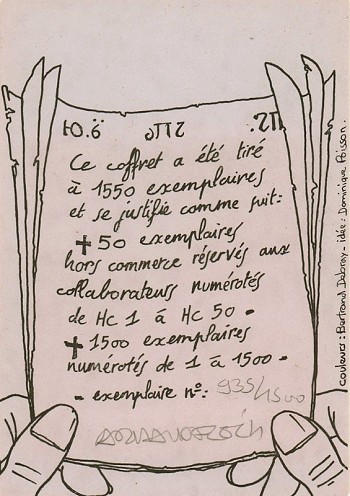 Ce coffret a été tiré
à 1550 exemplaires
et se justifie comme suit:
+ 50 exemplaires
hors commerce réservés aux
collaborateurs numérotés
de HC 1 à HC 50 -
+ 1500 exemplaires
numérotés de 1 à 1500 -
- exemplaire no: 935/1500
couleurs: Bertrand Dabray - idée: Dominique Poisson.